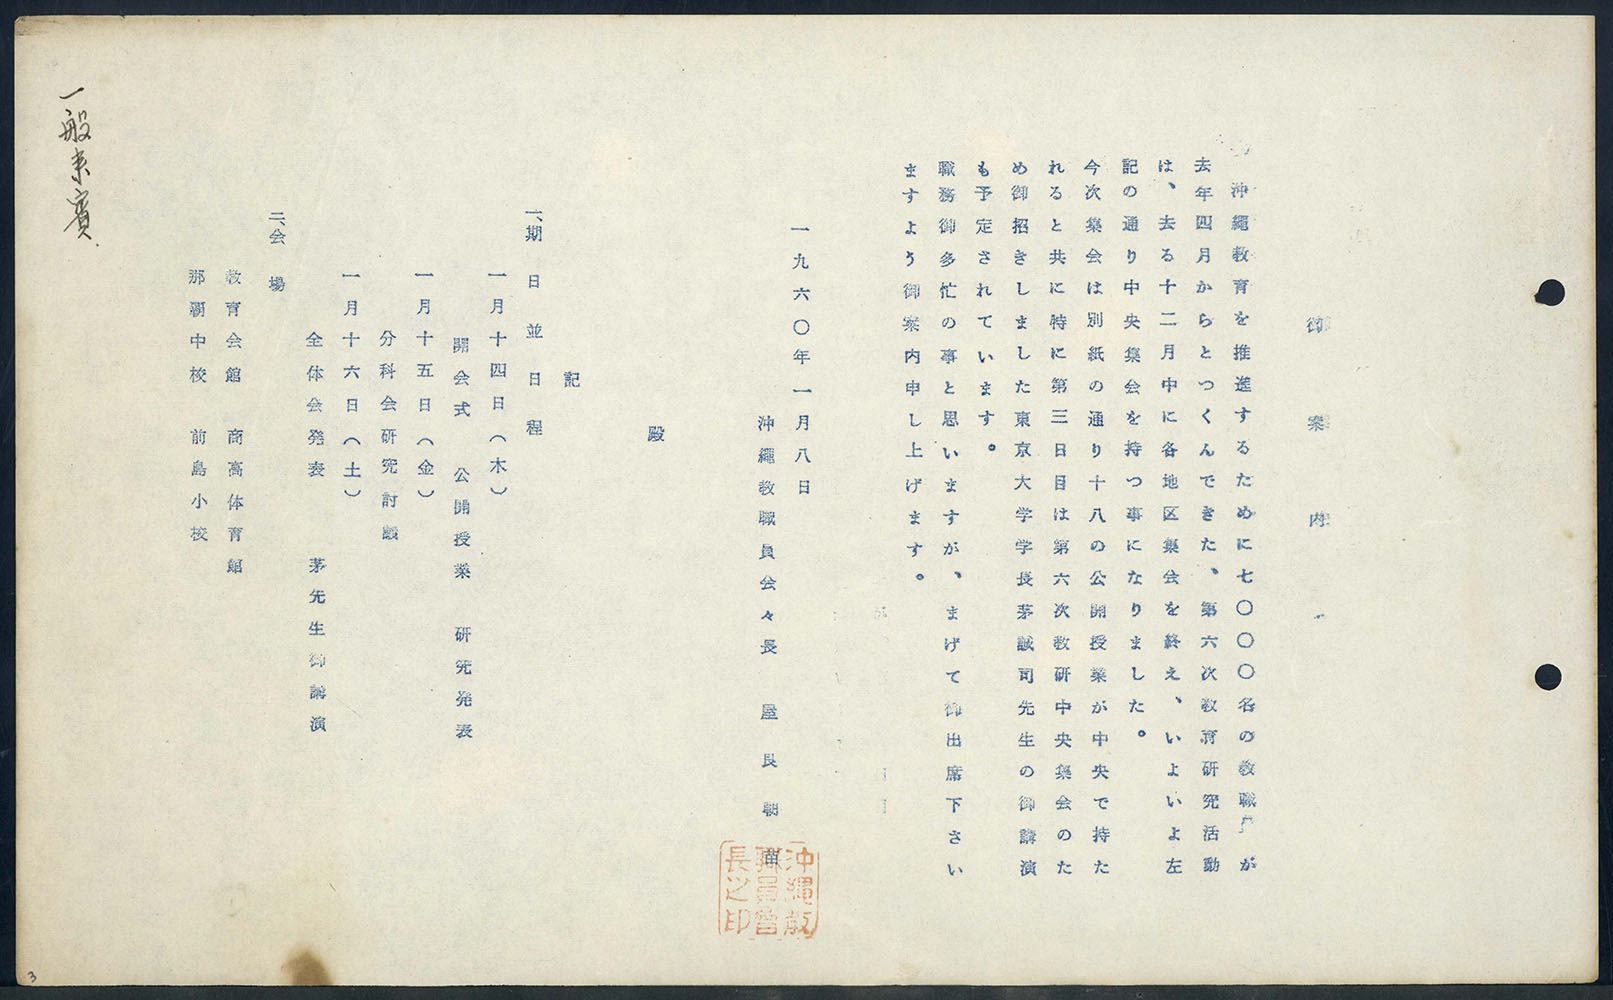 御案内
沖縄教育を推進するために七〇〇〇名の教職員が
去年四月からとつくんできた、第六次教育研究活動
は、去る十二月中に各地区集会を終え、いよいよ左
記の通り中央集会を持つ事になりました。
今次集会は別紙の通り十八の公開授業が中央で持た
れると共に特に第三日目は第六次教研中央集会のた
め御招きしました東京大学学長茅誠司先生の御講演
も予定されています。
職務御多忙の事と思いますが、まげて御出席下さい
ますよう御案内申し上げます。
一九六〇年一月八日
沖縄教職員会々長 屋良朝苗
沖縄教
職員会
長之印
殿
記
一、期日並日程
一月十四日(木)
開会式 公開授業 研究発表
一月十五日(金)
分科会研究討議
一月十六日(土)
全体会発表 茅先生御講演
二、会場
教育会館 商高体育館
那覇中校 前島小校
一般来賓.
3